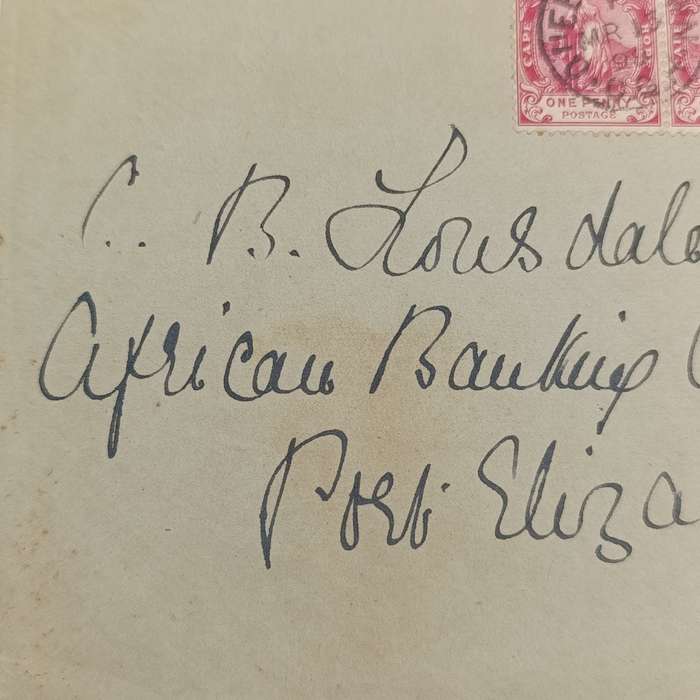 CAPE HOPE
ONE PENNY
POSTAGE
MR
C. B. Lonsdale
African Banking C
Port Eliza